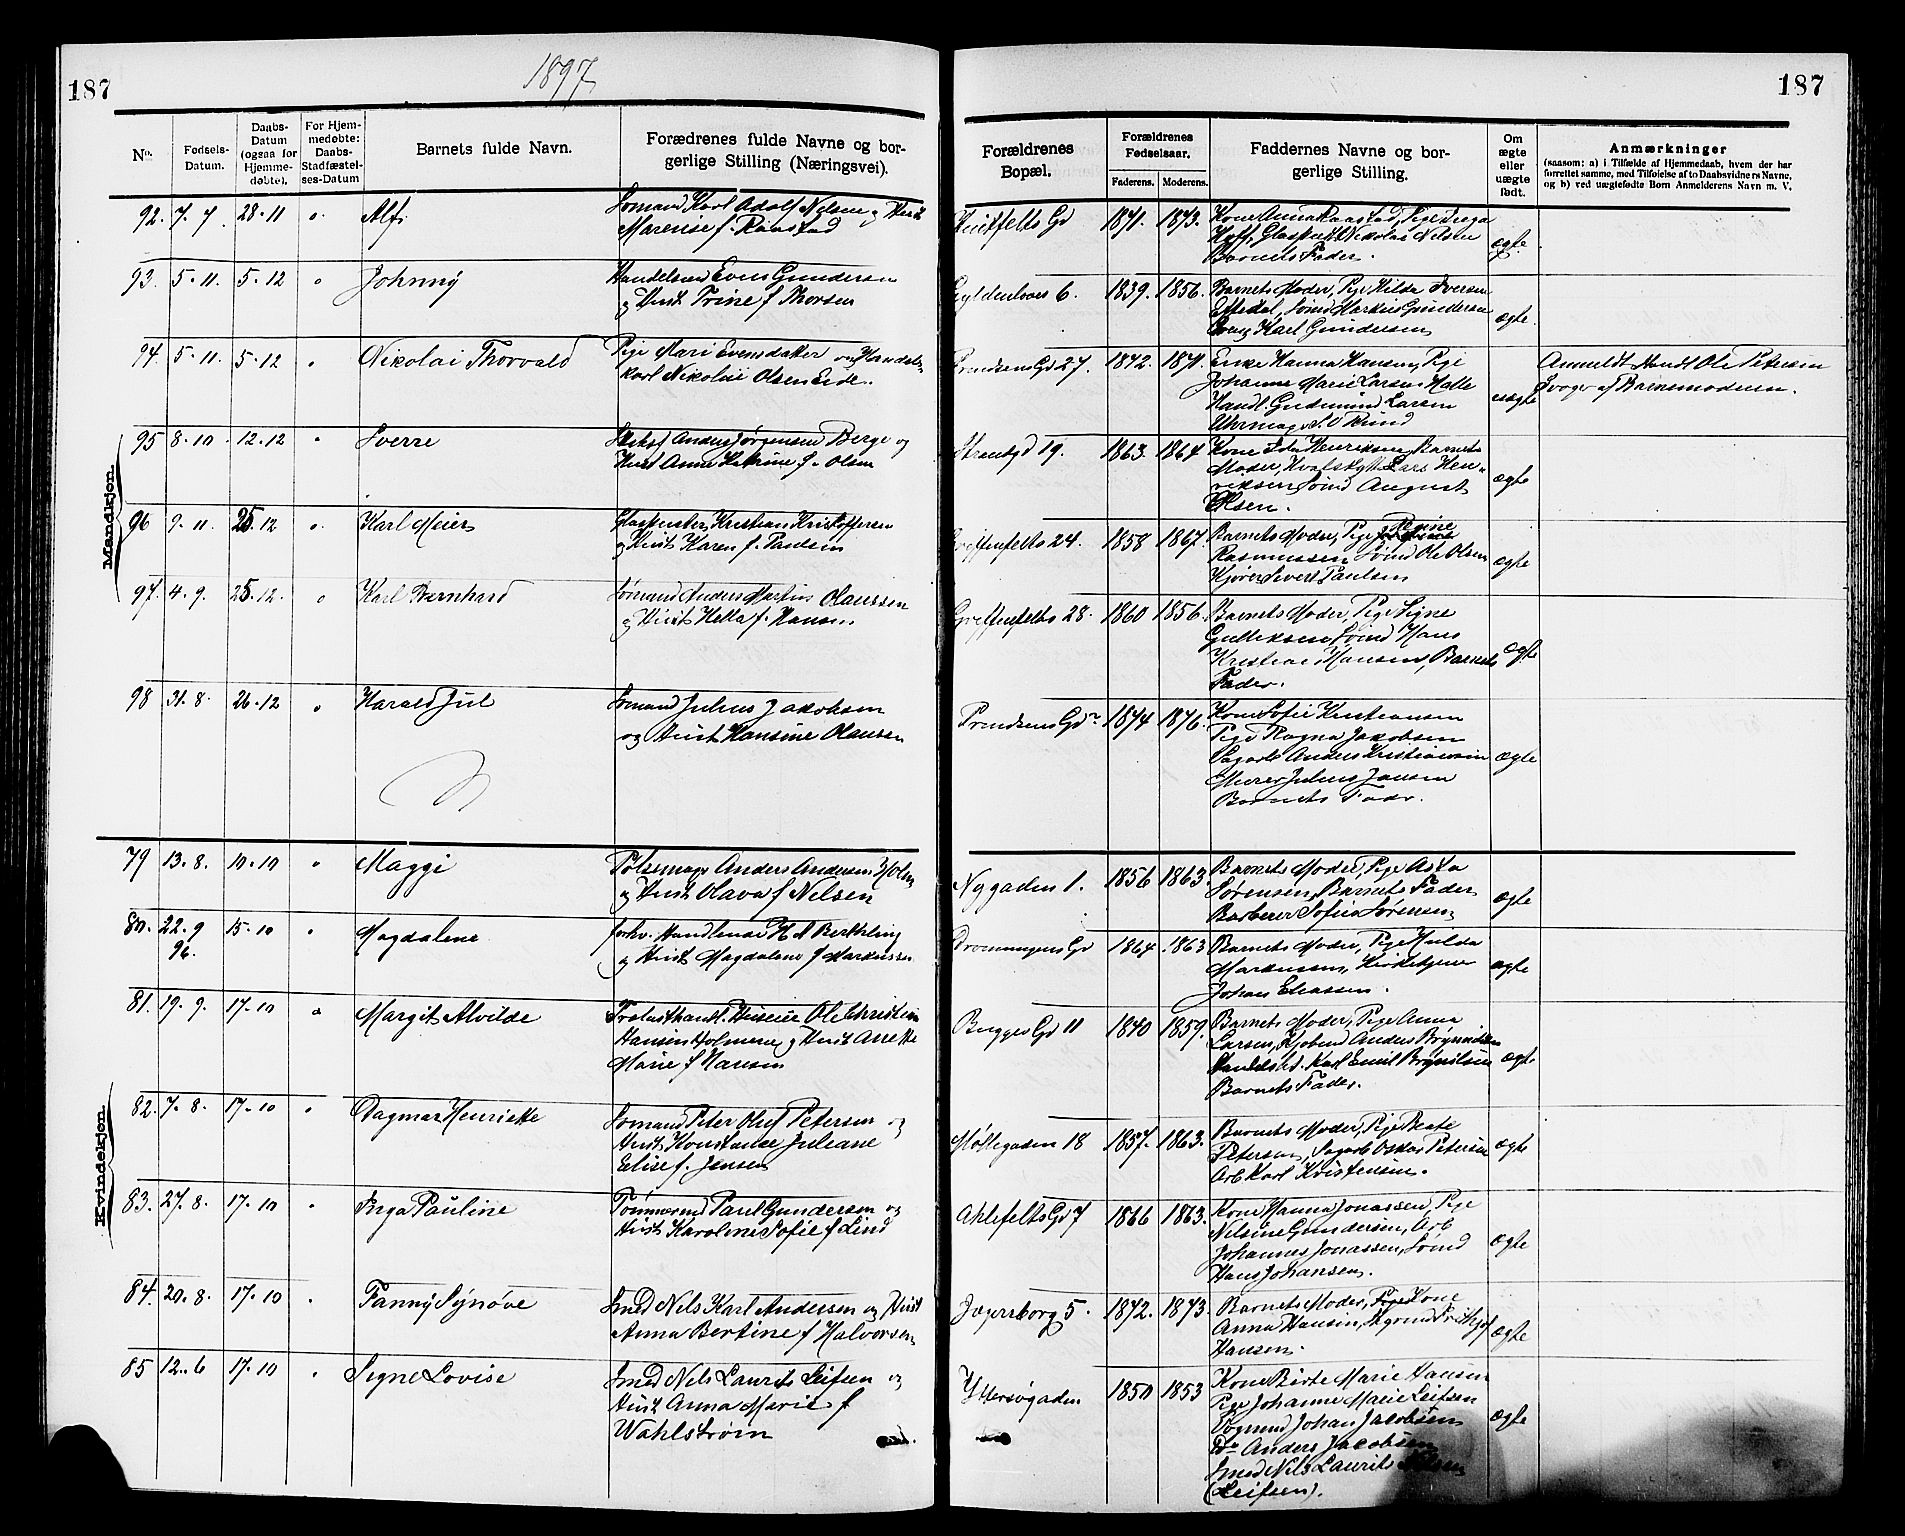 1897
187
187
No.
Fødsels-
Datum.
Daabs-
Datum
(ogsaa for
Hjemme-
døbte).
For Hjem-
medøbte:
Daabs-
Stadfæstel-
ses-Datum
Barnets fulde Navn.
Forædrenes fulde Navne og bor-
gerlige Stilling (Næringsvei).
Forældrenes
Bopæl.
Forældrenes
Fødselsaar.
Faderens.
Moderens.
Faddernes Navne og bor-
gerlige Stilling.
Om
ægte
eller
uægte
født.
Anmærkninger
(saasom: a) i Tilfælde af Hjemmedaab, hvem der har
forrettet samme, med Tilføielse af to Daabsvidners Navne,
og b) ved uægtefødte Børn Anmelderens Navn m. V.
Mandkjøn.
92. 7-7 28-11 Alf Sømand Karl Adolf Nilsen og Hust
Marense f. Raastad
Huitfelts Gd 1871. 1873. Kone Anna Raastad, Pige Inga
Hoff, Nikolai Nilsen
Barnets Fader. ægte.
93. 5-11. 5-12 Johnny Handelsm Even Gundersen
og Hust Trine f Thorsen
Gyldenløves 6. 1839. 1856. Barnets Moder, Pige Hilda Iversen
Sømd Markus Gundersen
Karl Gundersen ægte.
94. 5-11. 5-12 Nikolai Thorvald Pige Mari Evensdatter og Handels-
karl Nikolai Olsen Eide.
Prindsens Gd 27. 1872. 1871. Enke Hanna Hansen, Pige
Johanne Marie Larsen
Handl. Gudmund Larsen
Uhrmager S. O Rund uægte
Anmeldt Handl Ole Petersen
Svoger af Barnemoderen.
95 8-10 12-12 Sverre Anders Jørgensen Berge og
Hust Anne Katrine f. Olsen
Strandgd 19. 1863. 1864. Kone Ida Henriksen, Barnets
Moder, Lars Hen-
riksen, Sømd August
Olsen. ægte
96 9-11. 25-12 Karl Meier Kristian Kristoffersen
og Hust Karen f. Paulsen
Griffenfelts 24. 1858 1867. Barnets Moder, Pige Regine
Rasmussen, Sømd Ole Olsen
Kjører Sivert Paulsen ægte
97. 4-9. 25-12. Karl Bernhard Sømand Anders Martin Olaussen
og Hust Hella f. Hansen
Griffenfelts 28. 1860 1856. Barnets Moder, Pige Signe
Gulliksen, Sømd Hans
Kristian Hansen, Barnets
Fader. ægte
98 31-8. 26-12 Harald Jul Sømand Julius Jakobsen
og Hust Hansine Olausen
Prindsens Gd 1874 1876. Kone Sofie Kristiansen
Pige Ragna Jakobsen
Sagarb Anders Kristiansen
Murer Julius Jansen
Barnets Fader. ægte
Kvindekjøn.
79 13-8. 10-10 Maggi Pølsemager Anders Andersen Holm
og Hust Olava f Nilsen
Nygaden 1. 1856 1863. Barnets Moder, Pige Asta
Sørensen, Barnets Fader
Barberer Sørensen, ægte
80. 22-9 15-10 Magdalene forhv. Handlende H A Berthling
96. og Hust Magdalene f Markussen
Dronningens Gd 1864 1863 Barnets Moder, Pige Hulda
Markussen, Kirketjener
Johan Eliassen. ægte
81. 19-9. 17-10 Margit Alvilde Trælasthandl. Huseier Ole Christian
Hansen Holmene og Hust Anette
Marie f Hansen
Bugges Gd 11 1840 1859. Barnets Moder, Pige Anna
Larsen, Kjøbmd Anders Brynildsen
Karl Emil Brynildsen
Barnets Fader. ægte
82. 7-8. 17-10 Dagmar Henriette Sømand Peter Oluf Petersen og
Hust Konstance Juliane
Elise f. Jensen
Møllegaden 18 1857. 1863. Barnets Moder, Pige Beate
Petersen, Sagarb Oskar Petersen
Arb Karl Kristensen. ægte
83. 27-8. 17-10 Inga Pauline Tømmermd Paul Gundersen og
Hust Karoline Sofie f Lind
Ahlefelts Gd 7 1866 1863. Kone Hanna Jonassen, Pige
Nilsine Gundersen, Arb
Johannes Jonassen, Sømd
Hans Johansen. ægte
84. 20-8. 17-10 Fanny Synøve Smed Nils Karl Andersen og Hust
Anna Bertine f Halvorsen
Jegersborg 5. 1872. 1873. Barnets Moder, Kone
Anna Hansen, Styrmd Fridtjof
Hansen. ægte
85 12-6 17-10 Signe Lovise Smed Nils Laurits Leifsen og
Hust Anna Marie f
Wahlstrøm
Yttersøgaden 1850 1853 Kone Birte Marie Hansen
Pige Johanne Marie Leifsen
Vognmd Johan Jacobsen
Do Anders Jacobsen
Smed Nils Laurits
(Leifsen). ægte